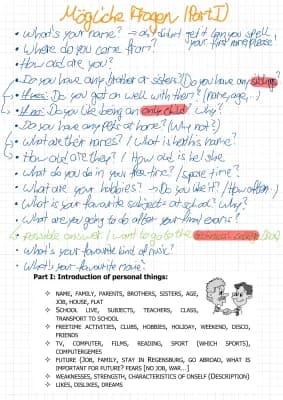 Mögliche Fragen (Part I)
• What's your name? → oh, I didn't get it can you spell
your first name please!
• Where do you come from?
• How old are you?
• Do you have any brother or sisters? (Do you have any siblings?
• If yes: Do you get on well with them? (name, age, ..)
• If no: Do you like being an only child? Why?
• Do you have any pets at home? (Why not?)
• What are their names? / What is her/his name?
• How old are they? / How old is he/she
• What do you do in your free time? / spare time?
• What are your hobbies? → Do you like it? / How often..)
• What is your favourite subjects at school? Why?
• What are you going to do after your final exams?
possible answer: I want to go to the
• What's your favourite kind of music?
• What's your favourite movie?
Part I: Introduction of personal things:
❖ NAME, FAMILY, PARENTS, BROTHERS, SISTERS, AGE,
JOB, HOUSE, FLAT
❖ SCHOOL LIVE, SUBJECTS, TEACHERS, CLASS,
TRANSPORT TO SCHOOL
❖ FREETIME ACTIVITIES, CLUBS, HOBBIES, HOLIDAY, WEEKEND, DISCO,
FRIENDS
❖ TV, COMPUTER, FILMS, READING, SPORT (WHICH SPORTS),
COMPUTERGEMES
❖ FUTURE (JOB, FAMILY, STAY IN REGENSBURG, GO ABROAD, WHAT IS
IMPORTANT FOR FUTURE? FEARS [NO JOB, WAR...]
❖ WEAKNESSES, STRENGTH, CHARACTERISTICS OF ONSELF (DESCRIPTION)
❖ LIKES, DISLIKES, DREAMS